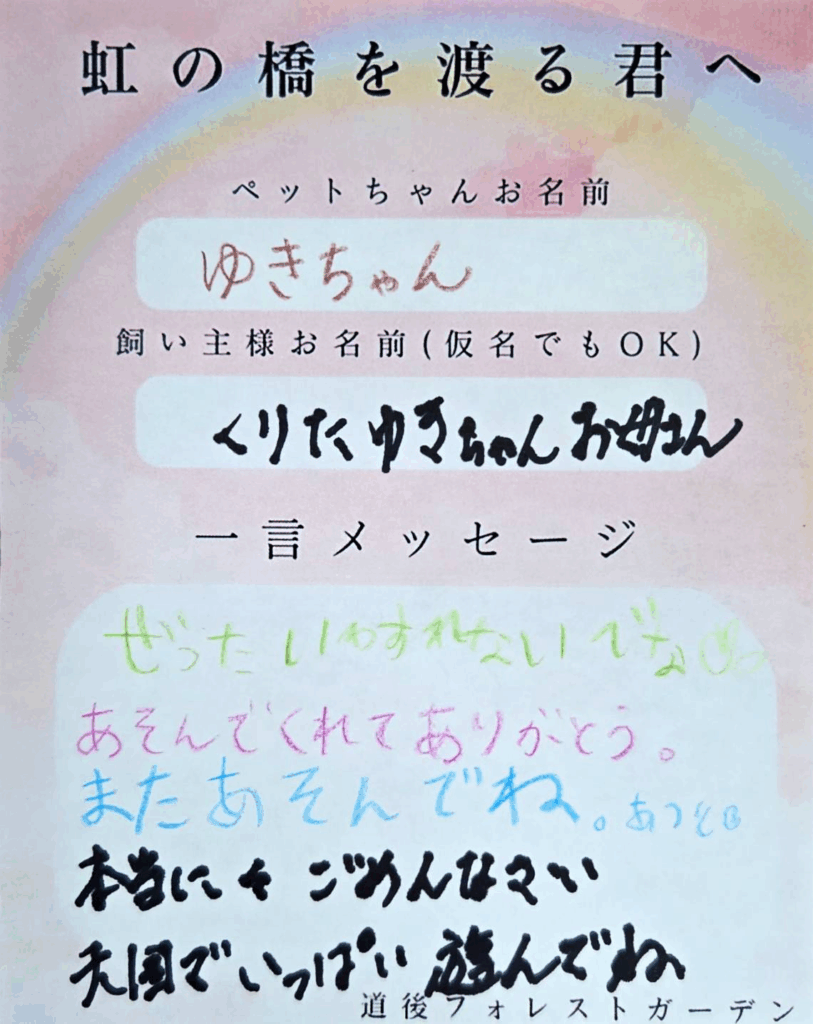 虹の橋を渡る君へ
ペットちゃんお名前
ゆきちゃん
飼い主様お名前(仮名でもOK)
くりたゆきちゃんお母さん
一言メッセージ
ぜったいわすれないでな
あそんでくれてありがとう。
またあそんでね。
本当に ごめんなさい
天国でいっぱい遊んでね
道後フォレストガーデン